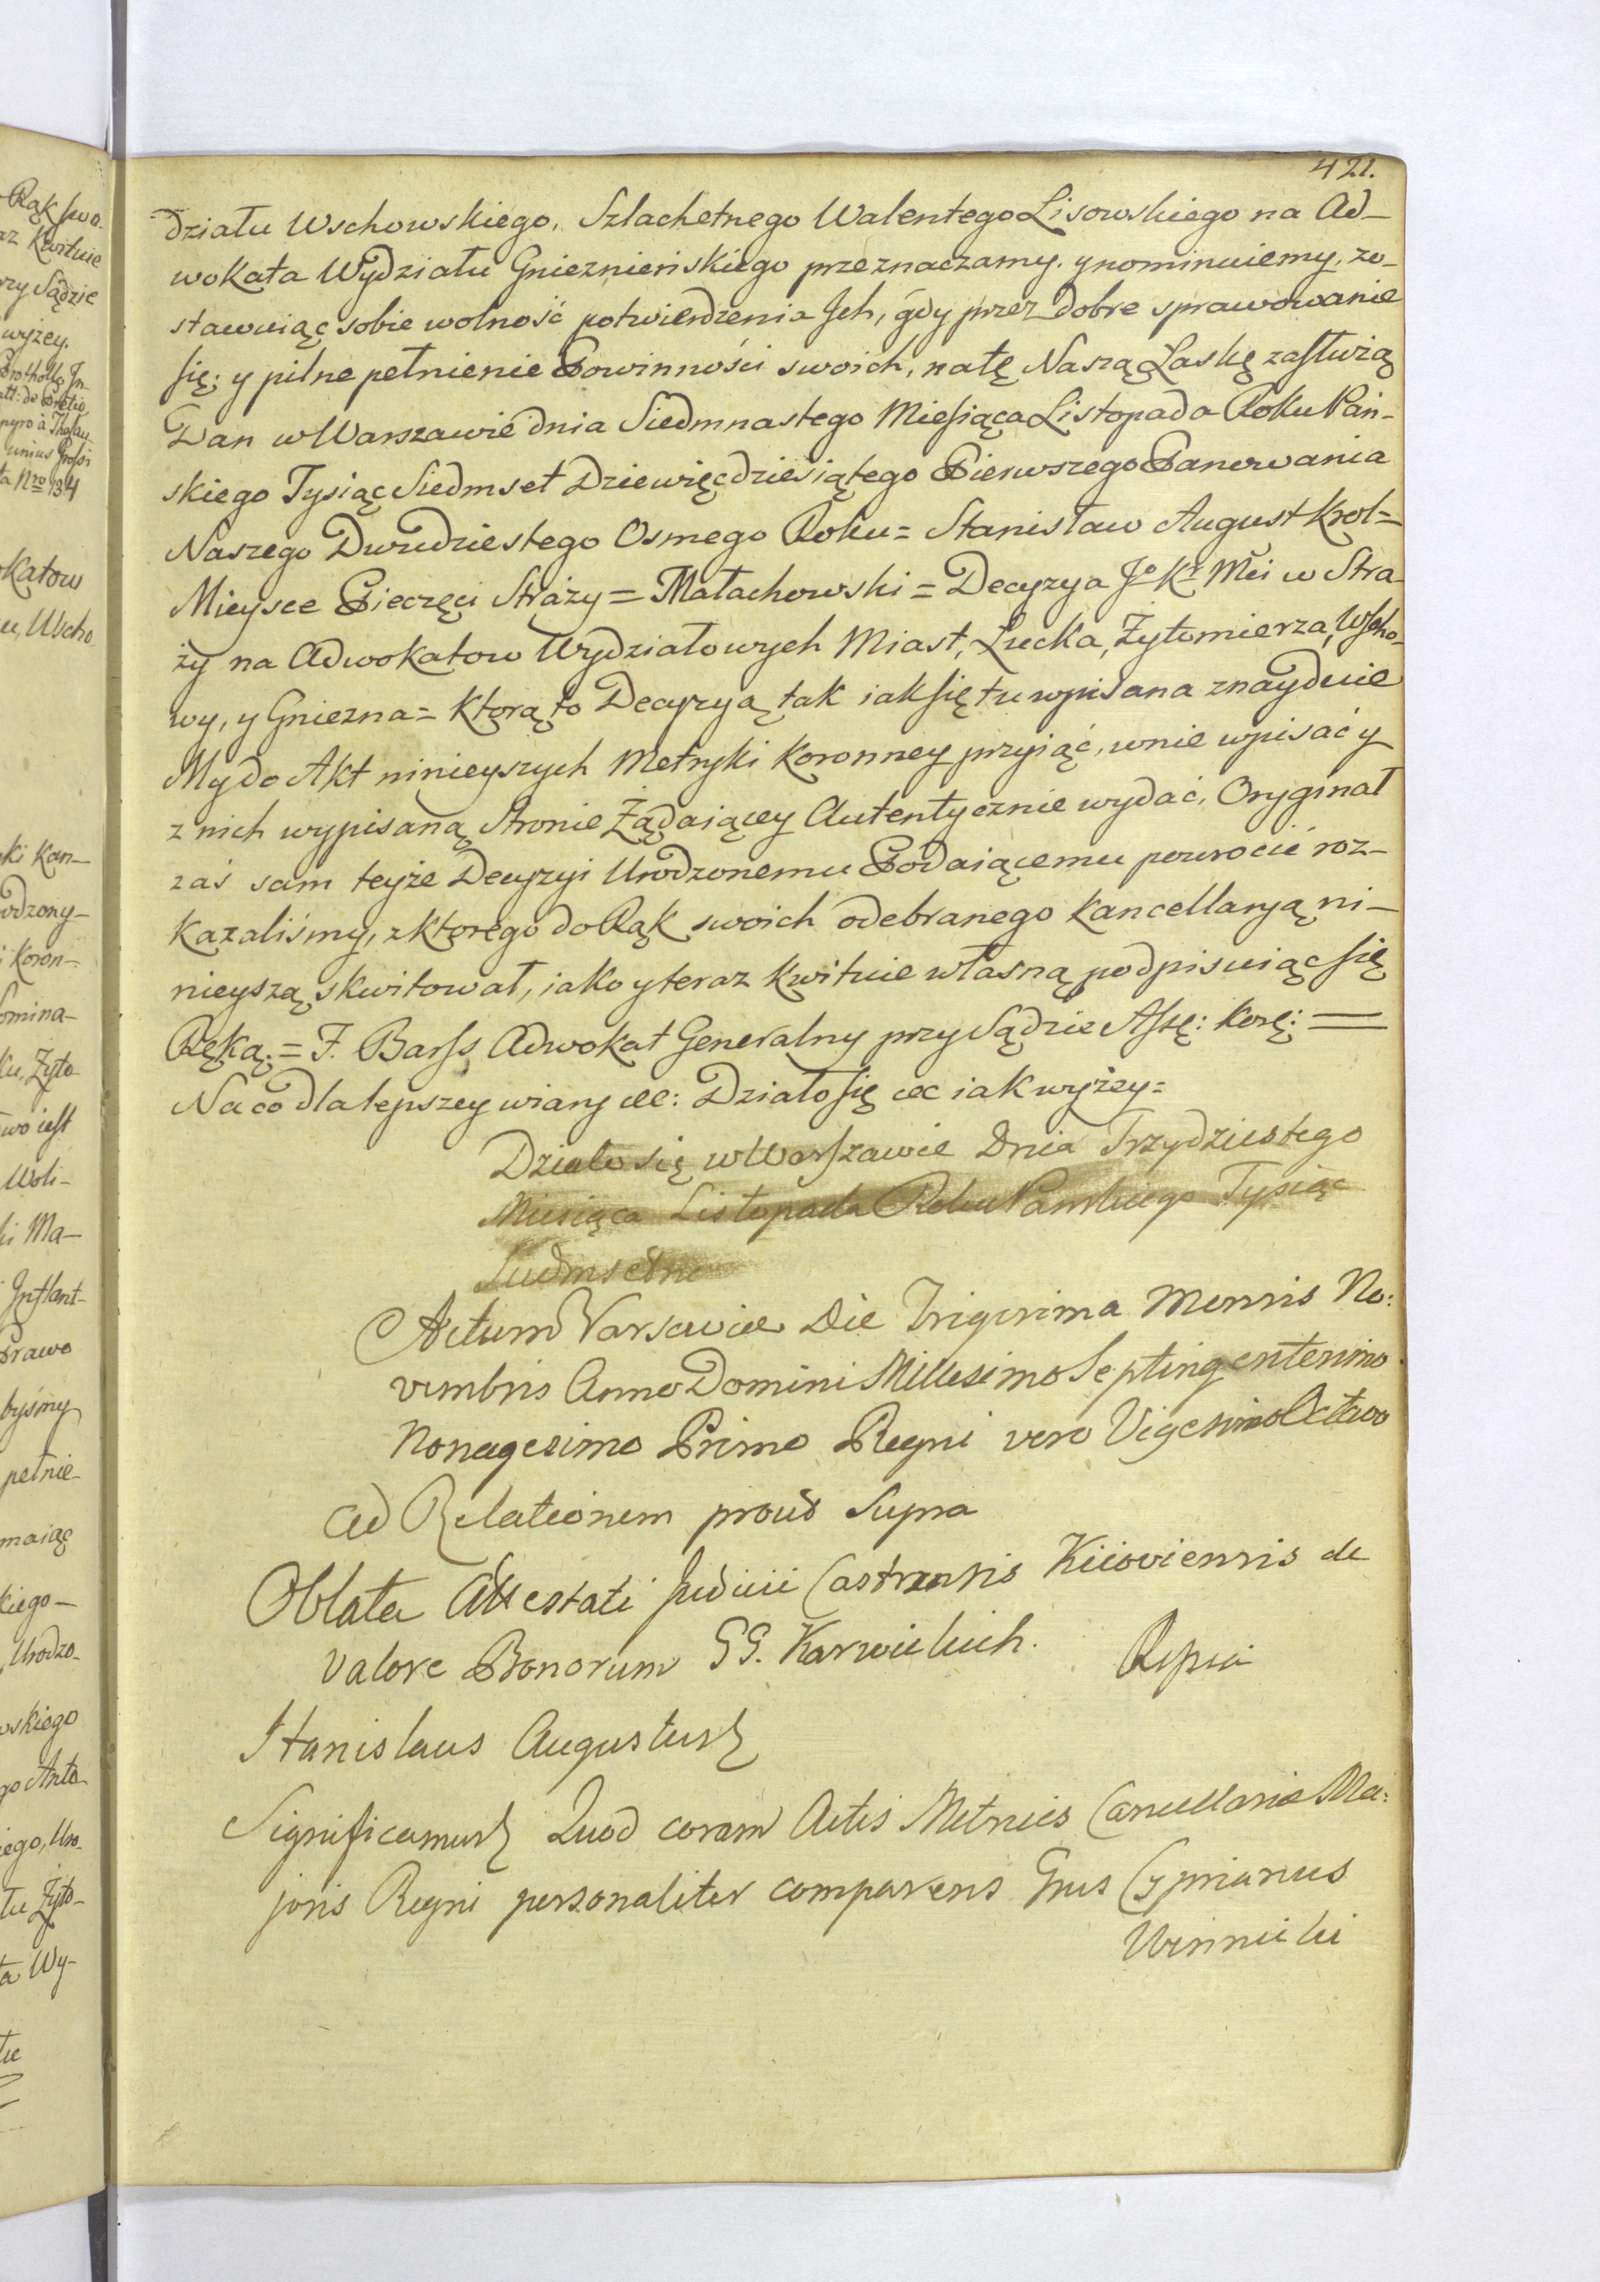 421.
działu Wschowskiego, Szlachetnego Walentego Lisowskiego na Ad-
wokata Wydziału Gnieznieńskiego przeznaczamy, y nominuiemy, zo-
stawuiąc sobie wolność potwierdzenia Ich, gdy przez dobre sprawowanie
się; y pilne pełnienie Powinności swoich, natę Naszą Łaskę zasłużą
Dan w Warszawie dnia Siedmnastego Miesiąca Listopada Roku Pań-
skiego Tysiąc Siedmset Dziewięćdziesiątego Pierwszego Panowania
Naszego Dwudziestego Osmego Roku = Stanisław August Krol =
Mieysce Pieczęci Straży = Małachowski = Decyzya Jo Kr Mci w Stra-
ży na Adwokatow Wydziałowych Miast, Łucka, Żytomierza, Wscho-
wy, y Gniezna = Ktorą to Decyzyą tak iak się tu wpisana znayduie
My do Akt ninieyszych Metryki Koronney przyiąć, w nie wpisać y
z nich wypisaną Stronie Żądaiącey Autentycznie wydać, Oryginał
zaś sam teyże Decyzyi Urodzonemu Podaiącemu powrocić roz-
kazaliśmy, z ktorego do Rąk swoich odebranego Kancellaryą ni-
nieyszą skwitował, iako y teraz kwituie własną podpisuiąc się
Ręką. = F. Barss Adwokat Generalny przy Sądzie Assę: Korę: =
Na co dla lepszey wiary etc: Działo się etc iak wyżey =
Działo się w Warszawie Dnia Trzydziestego
Miesiąca Listopada Roku Pańskiego Tysiąc
Siedmsetne
Actum Varsaviae Die Trigesima Mensis No:
vembris Anno Domini Millesimo Septingentesimo
Nonagesimo Primo Regni vero Vigesimo Octavo
Ad Relationem prout Supra
Oblata Attestati Judicii Castrensis Kiioviensis de
Valore Bonorum GG. Karwickich.
Stanislaus Augustus
Significamus Quod coram Actis Metrices Cancellariae Ma:
joris Regni personaliter comparens Gnus Cyprianus
Winnicki